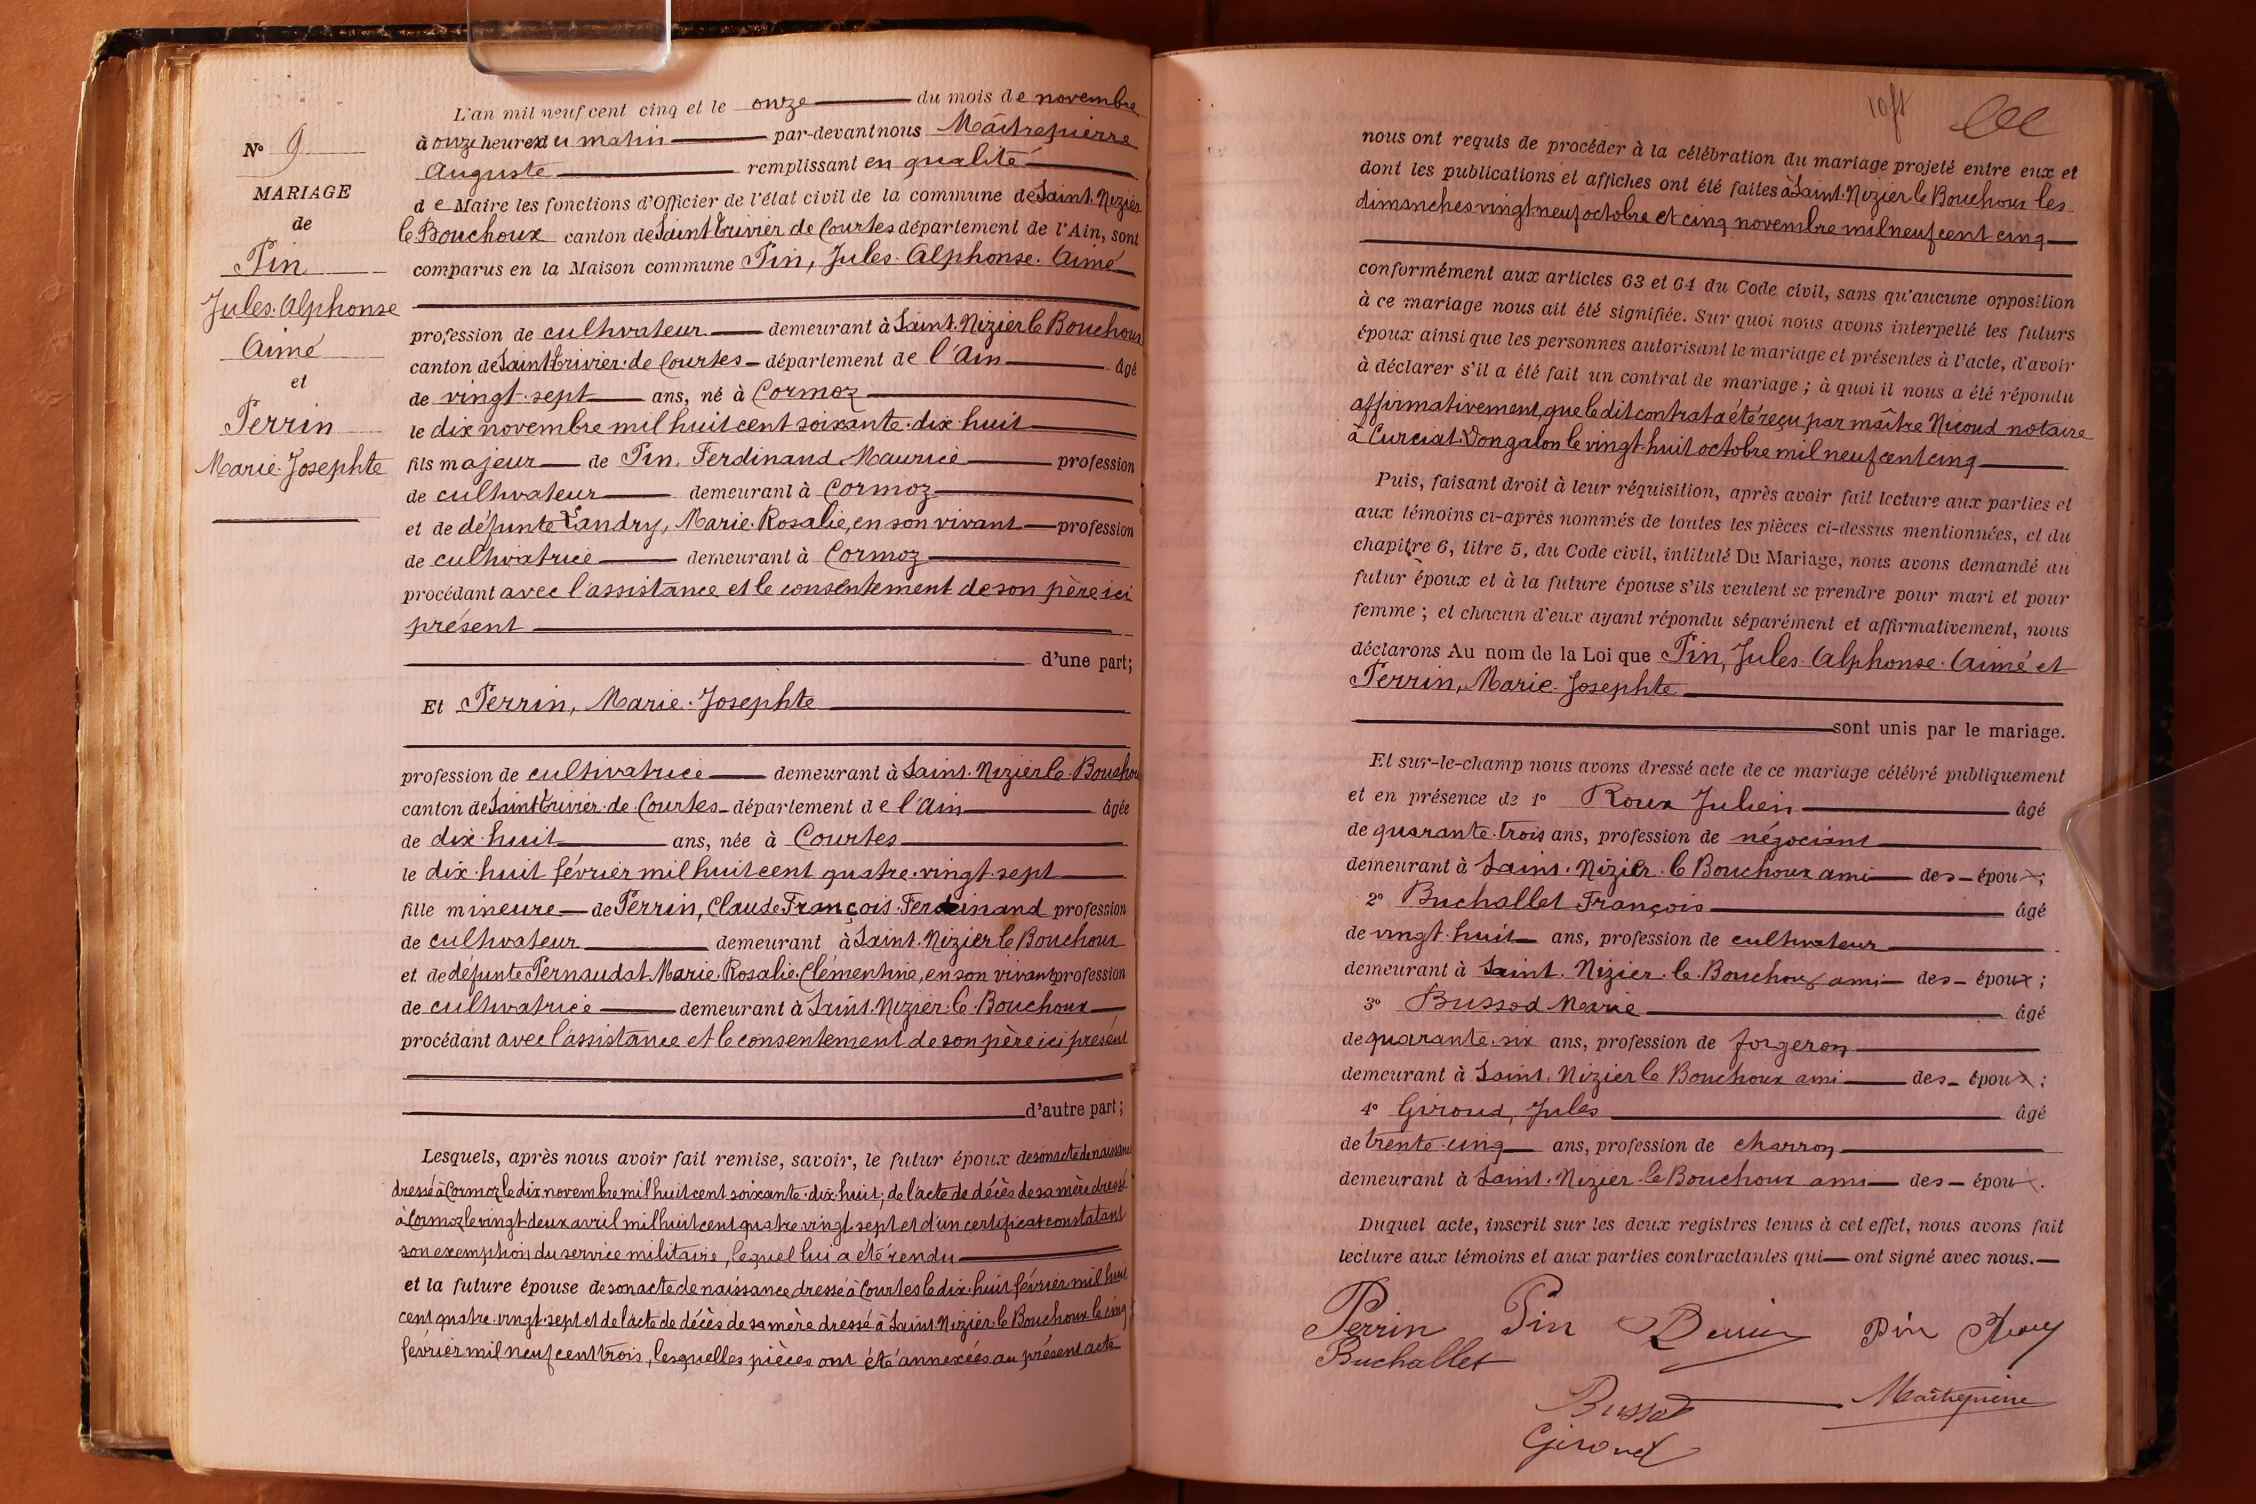 N° 9
MARIAGE
de
Pin
Jules. Alphonse
Aimé
et
Perrin
Marie. Josephte
L'an mil neuf cent cinq et le onze du mois de novembre
à onze heures du matin par-devant nous Maîtrepierre
Auguste remplissant en qualité
de Maire les fonctions d'Officier de l'état civil de la commune de Saint. Nizier
le Bouchoux canton de Saint Trivier de Courtes département de l'Ain, sont
comparus en la Maison commune Pin, Jules. Alphonse. Aimé
profession de cultivateur demeurant à Saint. Nizier le Bouchoux
canton de Saint Trivier. de Courtes département de l'Ain âgé
de vingt. sept ans, né à Cormoz
le dix novembre mil huit cent soixante. dix huit
fils majeur de Pin, Ferdinand. Maurice profession
de cultivateur demeurant à Cormoz
et de défunte Landry, Marie. Rosalie, en son vivant profession
de cultivatrice demeurant à Cormoz
procédant avec l'assistance et le consentement de son père ici
présent
d'une part;
Et Perrin, Marie. Josephte
profession de cultivatrice demeurant à Saint. Nizier le. Bouchou
canton de Saint Trivier. de. Courtes département de l'Ain âgée
de dix. huit ans, née à Courtes
le dix. huit février mil huit cent quatre. vingt. sept
fille mineure de Perrin, Claude. François. Ferdinand profession
de cultivateur demeurant à Saint. Nizier le Bouchoux
et de défunte Pernaudat Marie. Rosalie. Clémentine, en son vivant profession
de cultivatrice demeurant à Saint. Nizier. le. Bouchoux
procédant avec l'assistance et le consentement de son père ici présent
d'autre part;
Lesquels, après nous avoir fait remise, savoir, le futur époux de son acte de naissance
dressé à Cormoz le dix novembre mil huit cent soixante. dix. huit, de l'acte de décès de sa mère dressé
à Cormoz le vingt-deux avril mil huit cent quatre vingt. sept et d'un certificat constatant
son exemption du service militaire, lequel lui a été rendu
et la future épouse de son acte de naissance dressé à Courtes le dix. huit février mil huit
cent quatre. vingt. sept et de l'acte de décès de sa mère dressé à Saint. Nizier. le Bouchoux le cinq
février mil neuf cent trois, lesquelles pièces ont été annexées au présent acte
nous ont requis de procéder à la célébration du mariage projeté entre eux et
dont les publications et affiches ont été faites à Saint. Nizier le Bouchoux les
dimanches vingt-neuf octobre et cinq novembre mil neuf cent cinq
conformément aux articles 63 et 64 du Code civil, sans qu'aucune opposition
à ce mariage nous ait été signifiée. Sur quoi nous avons interpellé les futurs
époux ainsi que les personnes autorisant le mariage et présentes à l'acte, d'avoir
à déclarer s'il a été fait un contrat de mariage ; à quoi il nous a été répondu
affirmativement, que le dit contrat a été reçu par maître Nicoud notaire
à Curciat. Dongalon le vingt. huit octobre mil neuf cent cinq
Puis, faisant droit à leur réquisition, après avoir fait lecture aux parties et
aux témoins ci-après nommés de toutes les pièces ci-dessus mentionnées, et du
chapitre 6, titre 5, du Code civil, intitulé Du Mariage, nous avons demandé au
futur époux et à la future épouse s'ils veulent se prendre pour mari et pour
femme ; et chacun d'eux ayant répondu séparément et affirmativement, nous
déclarons Au nom de la Loi que Pin, Jules. Alphonse. Aimé et
Perrin, Marie. Josephte
sont unis par le mariage.
Et sur-le-champ nous avons dressé acte de ce mariage célébré publiquement
et en présence de 1° Roux Julien âgé
de quarante. trois ans, profession de négociant
demeurant à Saint. Nizier. le Bouchoux ami des époux;
2° Buchallet François âgé
de vingt. huit ans, profession de cultivateur
demeurant à Saint. Nizier. le. Bouchoux ami des époux;
3° Bussod Marie âgé
de quarante. six ans, profession de forgeron
demeurant à Saint. Nizier le Bouchoux ami des époux;
4° Giroud, Jules âgé
de trente. cinq ans, profession de charron
demeurant à Saint. Nizier. le Bouchoux ami des époux.
Duquel acte, inscrit sur les deux registres tenus à cet effet, nous avons fait
lecture aux témoins et aux parties contractantes qui ont signé avec nous.
Perrin Pin Perrin Pin Roux
Buchallet
Bussod Maitrepierre
Giroud